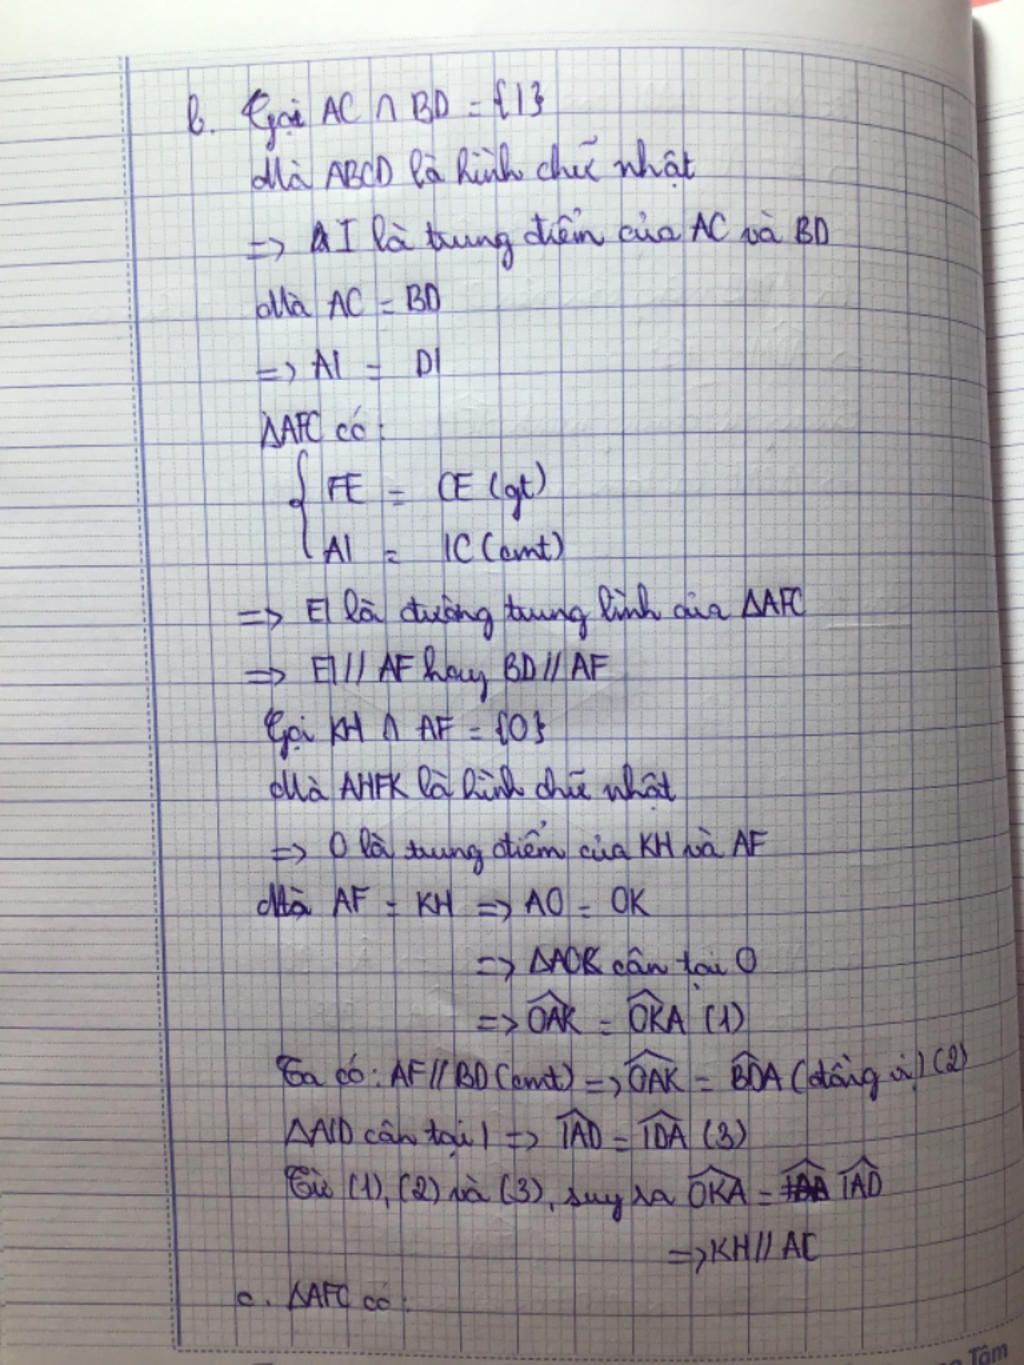 b. Gọi AC ∩ BD = {I}
Mà ABCD là hình chữ nhật
=> I là trung điểm của AC và BD
Mà AC = BD
=> AI = DI
ΔAFC có:
{ FE = CE (gt)
AI = IC (cmt)
=> EI là đường trung bình của ΔAFC
=> EI // AF hay BD // AF
Gọi KH ∩ AF = {O}
Mà AHFK là hình chữ nhật
=> O là trung điểm của KH và AF
Mà AF = KH => AO = OK
=> ΔAOK cân tại O
=> \widehat{OAK} = \widehat{OKA} (1)
Ta có: AF // BD (cmt) => \widehat{OAK} = \widehat{BDA} (đồng vị) (2)
ΔAID cân tại I => \widehat{IAD} = \widehat{IDA} (3)
Từ (1), (2) và (3), suy ra \widehat{OKA} = \widehat{IAD}
=> KH // AC
c. ΔAFC có:
Tâm